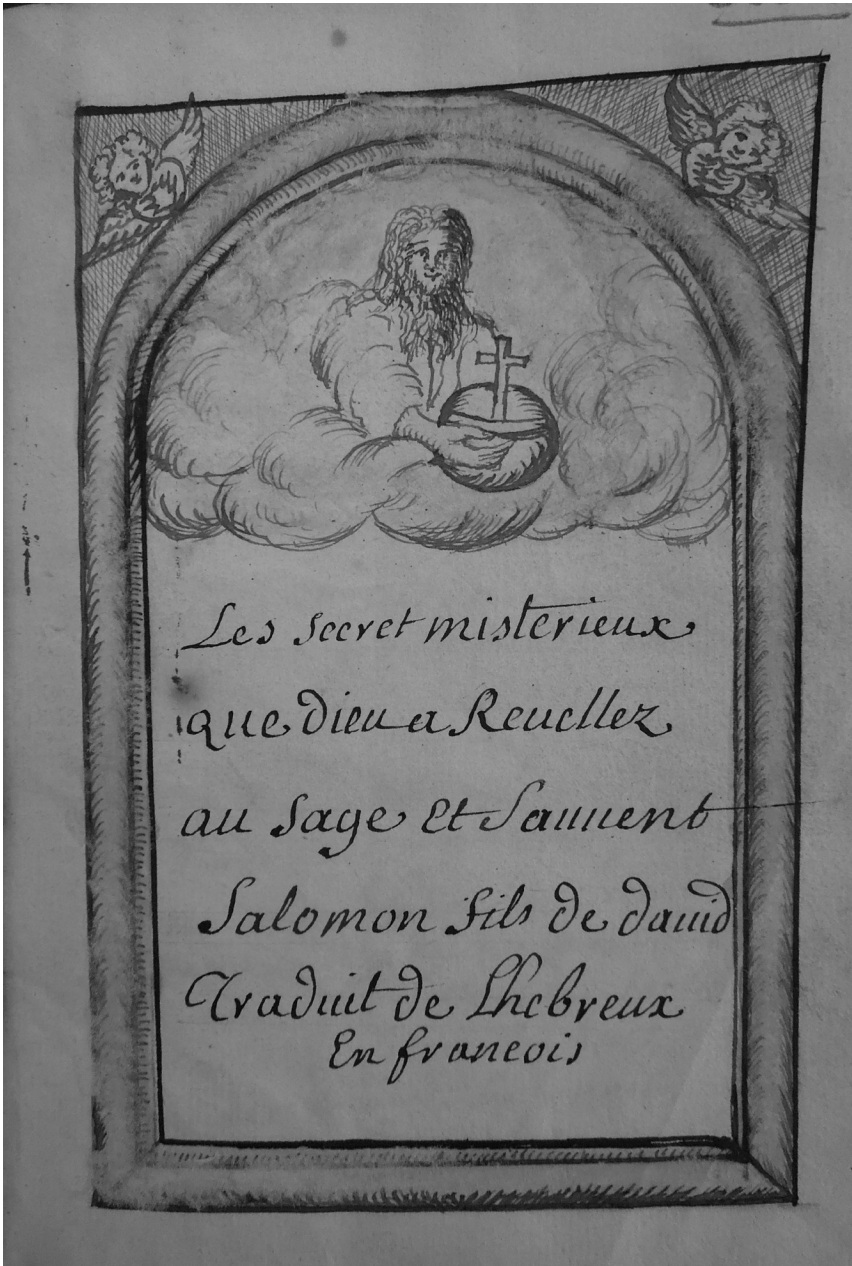 Les secret misterieux
que dieu a Reuellez
au sage Et Sauuent
Salomon fils de dauid
Traduit de Lhebreux
En francois